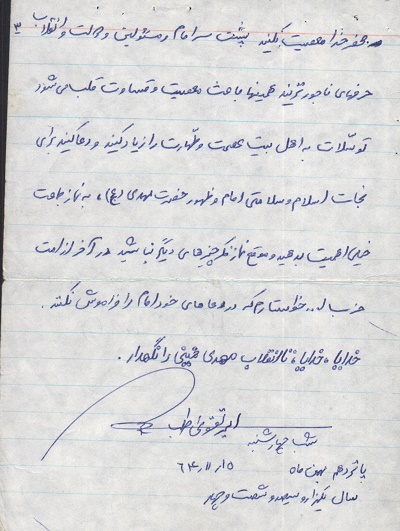 بمحضر خدا معصیت نکنید پشت سر امام و مسئولین و دولت و انقلاب ۳
حرفهای ناجور نزنید همینها باعث معصیت و قساوت قلب می‌شود
توسّلات به اهل بیت عصمت و طهارت را زیاد کنید و دعا کنید برای
نجات اسلام و سلامتی امام و ظهور حضرت مهدی (عج)، به نماز جماعت
خیلی اهمیت بدهید و موقع نماز فکر چیزهای دیگر نباشید در آخر از امت
حزب ا... خواستارم که در دعاهای خود امام را فراموش نکنند.
خدایا، خدایا، تا انقلاب مهدی خمینی را نگهدار.
شب چهارشنبه
پانزدهم بهمن ماه ۶۴،۱۱،۱۵
سال یکهزار و سیصد و شصت و چهار